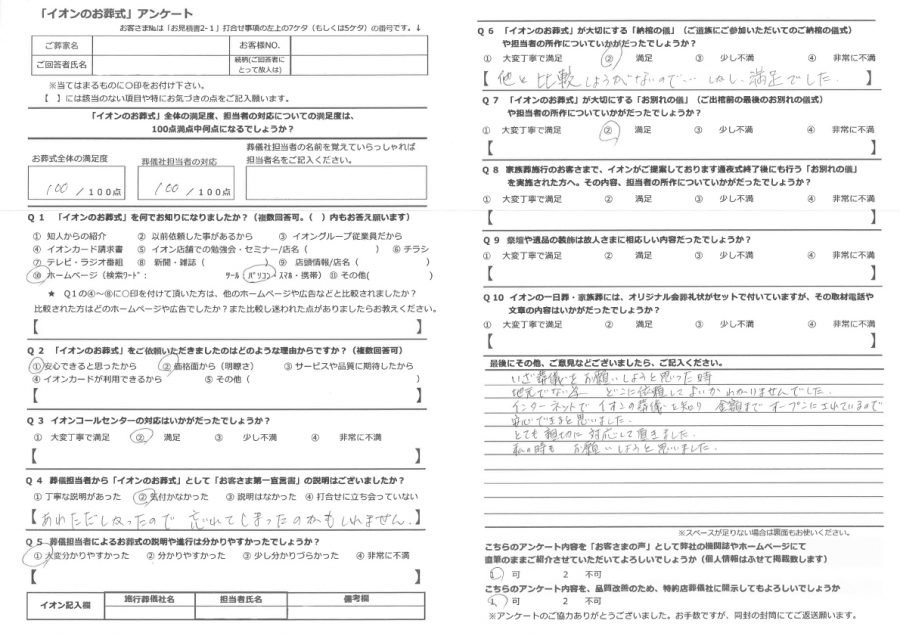 「イオンのお葬式」アンケート
お客さま№は「お見積書2-1」打合せ事項の左上の7ケタ（もしくは5ケタ）の番号です。↓
ご葬家名　お客様NO.
ご回答者氏名　続柄(ご回答者にとって故人は)
※当てはまるものに〇印をお付け下さい。
【　】には該当のない項目や特にお気づきの点をご記入願います。
「イオンのお葬式」全体の満足度、担当者の対応についての満足度は、
100点満点中何点になるでしょうか？
お葬式全体の満足度　葬儀社担当者の対応　葬儀社担当者の名前を覚えていらっしゃれば
担当者名をご記入ください。
100 ／100点　100 ／100点
Q１　「イオンのお葬式」を何でお知りになりましたか？（複数回答可。（　）内もお答え願います）
① 知人からの紹介　② 以前依頼した事があるから　③ イオングループ従業員だから
④ イオンカード請求書　⑤ イオン店舗での勉強会・セミナー/店名（　　）　⑥ チラシ
⑦ テレビ・ラジオ番組　⑧ 新聞・雑誌（　　）　⑨ 店頭情報/店名（　　）
⑩ ホームページ（検索ﾜｰﾄﾞ：　　ﾂｰﾙ　パソコン・スマホ・携帯）　⑪ その他(　　)
★　Q１の④～⑧に〇印を付けて頂いた方は、他のホームページや広告などと比較されましたか？
比較された方はどのホームページや広告でしたか？また比較し迷われた点がありましたらお教えください。
【　】
Q２　「イオンのお葬式」をご依頼いただきましたのはどのような理由からですか？（複数回答可）
①安心できると思ったから　②価格面から（明瞭さ）　③サービスや品質に期待したから
④イオンカードが利用できるから　⑤その他（　　）
【　】
Q３　イオンコールセンターの対応はいかがだったでしょうか？
① 大変丁寧で満足　② 満足　③ 少し不満　④ 非常に不満
【　】
Q４　葬儀担当者から「イオンのお葬式」として「お客さま第一宣言書」の説明はございましたか？
①丁寧な説明があった　②気付かなかった　③説明はなかった　④打合せに立ち会っていない
【あわただしかったので 忘れてしまったのかもしれません.】
Q５　葬儀担当者によるお葬式の説明や進行は分かりやすかったでしょうか？
①大変分かりやすかった　②分かりやすかった　③少し分かりづらかった　④非常に不満
【　】
イオン記入欄　施行葬儀社名　担当者氏名　備考欄
Q６　「イオンのお葬式」が大切にする「納棺の儀」（ご遺族にご参加いただいてのご納棺の儀式）
や担当者の所作についていかがだったでしょうか？
① 大変丁寧で満足　② 満足　③ 少し不満　④ 非常に不満
【他と比較しようがないので… しかし 満足でした.】
Q７　「イオンのお葬式」が大切にする「お別れの儀」（ご出棺前の最後のお別れの儀式）
や担当者の所作についていかがだったでしょうか？
① 大変丁寧で満足　② 満足　③ 少し不満　④ 非常に不満
【　】
Q８　家族葬施行のお客さまで、イオンがご提案しております通夜式終了後にも行う「お別れの儀」
を実施された方へ。その内容、担当者の所作についていかがだったでしょうか？
① 大変丁寧で満足　② 満足　③ 少し不満　④ 非常に不満
【　】
Q９　祭壇や遺品の装飾は故人さまに相応しい内容だったでしょうか？
① 大変丁寧で満足　② 満足　③ 少し不満　④ 非常に不満
【　】
Q10　イオンの一日葬・家族葬には、オリジナル会葬礼状がセットで付いていますが、その取材電話や
文章の内容はいかがだったでしょうか？
① 大変丁寧で満足　② 満足　③ 少し不満　④ 非常に不満
【　】
最後にその他、ご意見などございましたら、ご記入ください。
いざ葬儀をお願いしようと思った時
地元でない為 どこに依頼してよいかわかりませんでした.
インターネットで イオンの葬儀を知り 金額まで オープンにされているので
安心できると思いました.
とても親切に対応して頂きました.
私の時も お願いしようと思いました.
※スペースが足りない場合は裏面もお使いください。
こちらのアンケート内容を「お客さまの声」として弊社の機関誌やホームページにて
直筆のままご紹介させていただいてよろしいでしょうか（個人情報はふせて掲載致します）
1　可　2　不可
こちらのアンケート内容を、品質改善のため、特約店葬儀社に開示してもよろしいでしょうか
1　可　2　不可
※アンケートのご協力ありがとうございました。お手数ですが、同封の封筒にてご返送願います。